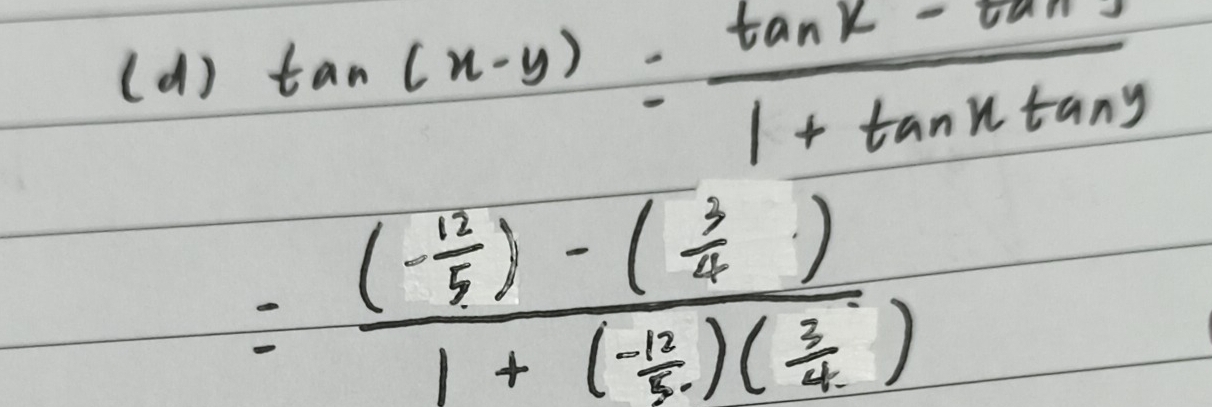 (d) tan (x-y) = tan x - tan y
1 + tan x tan y
= (-12/5) - (3/4)
1 + (-12/5)(3/4)